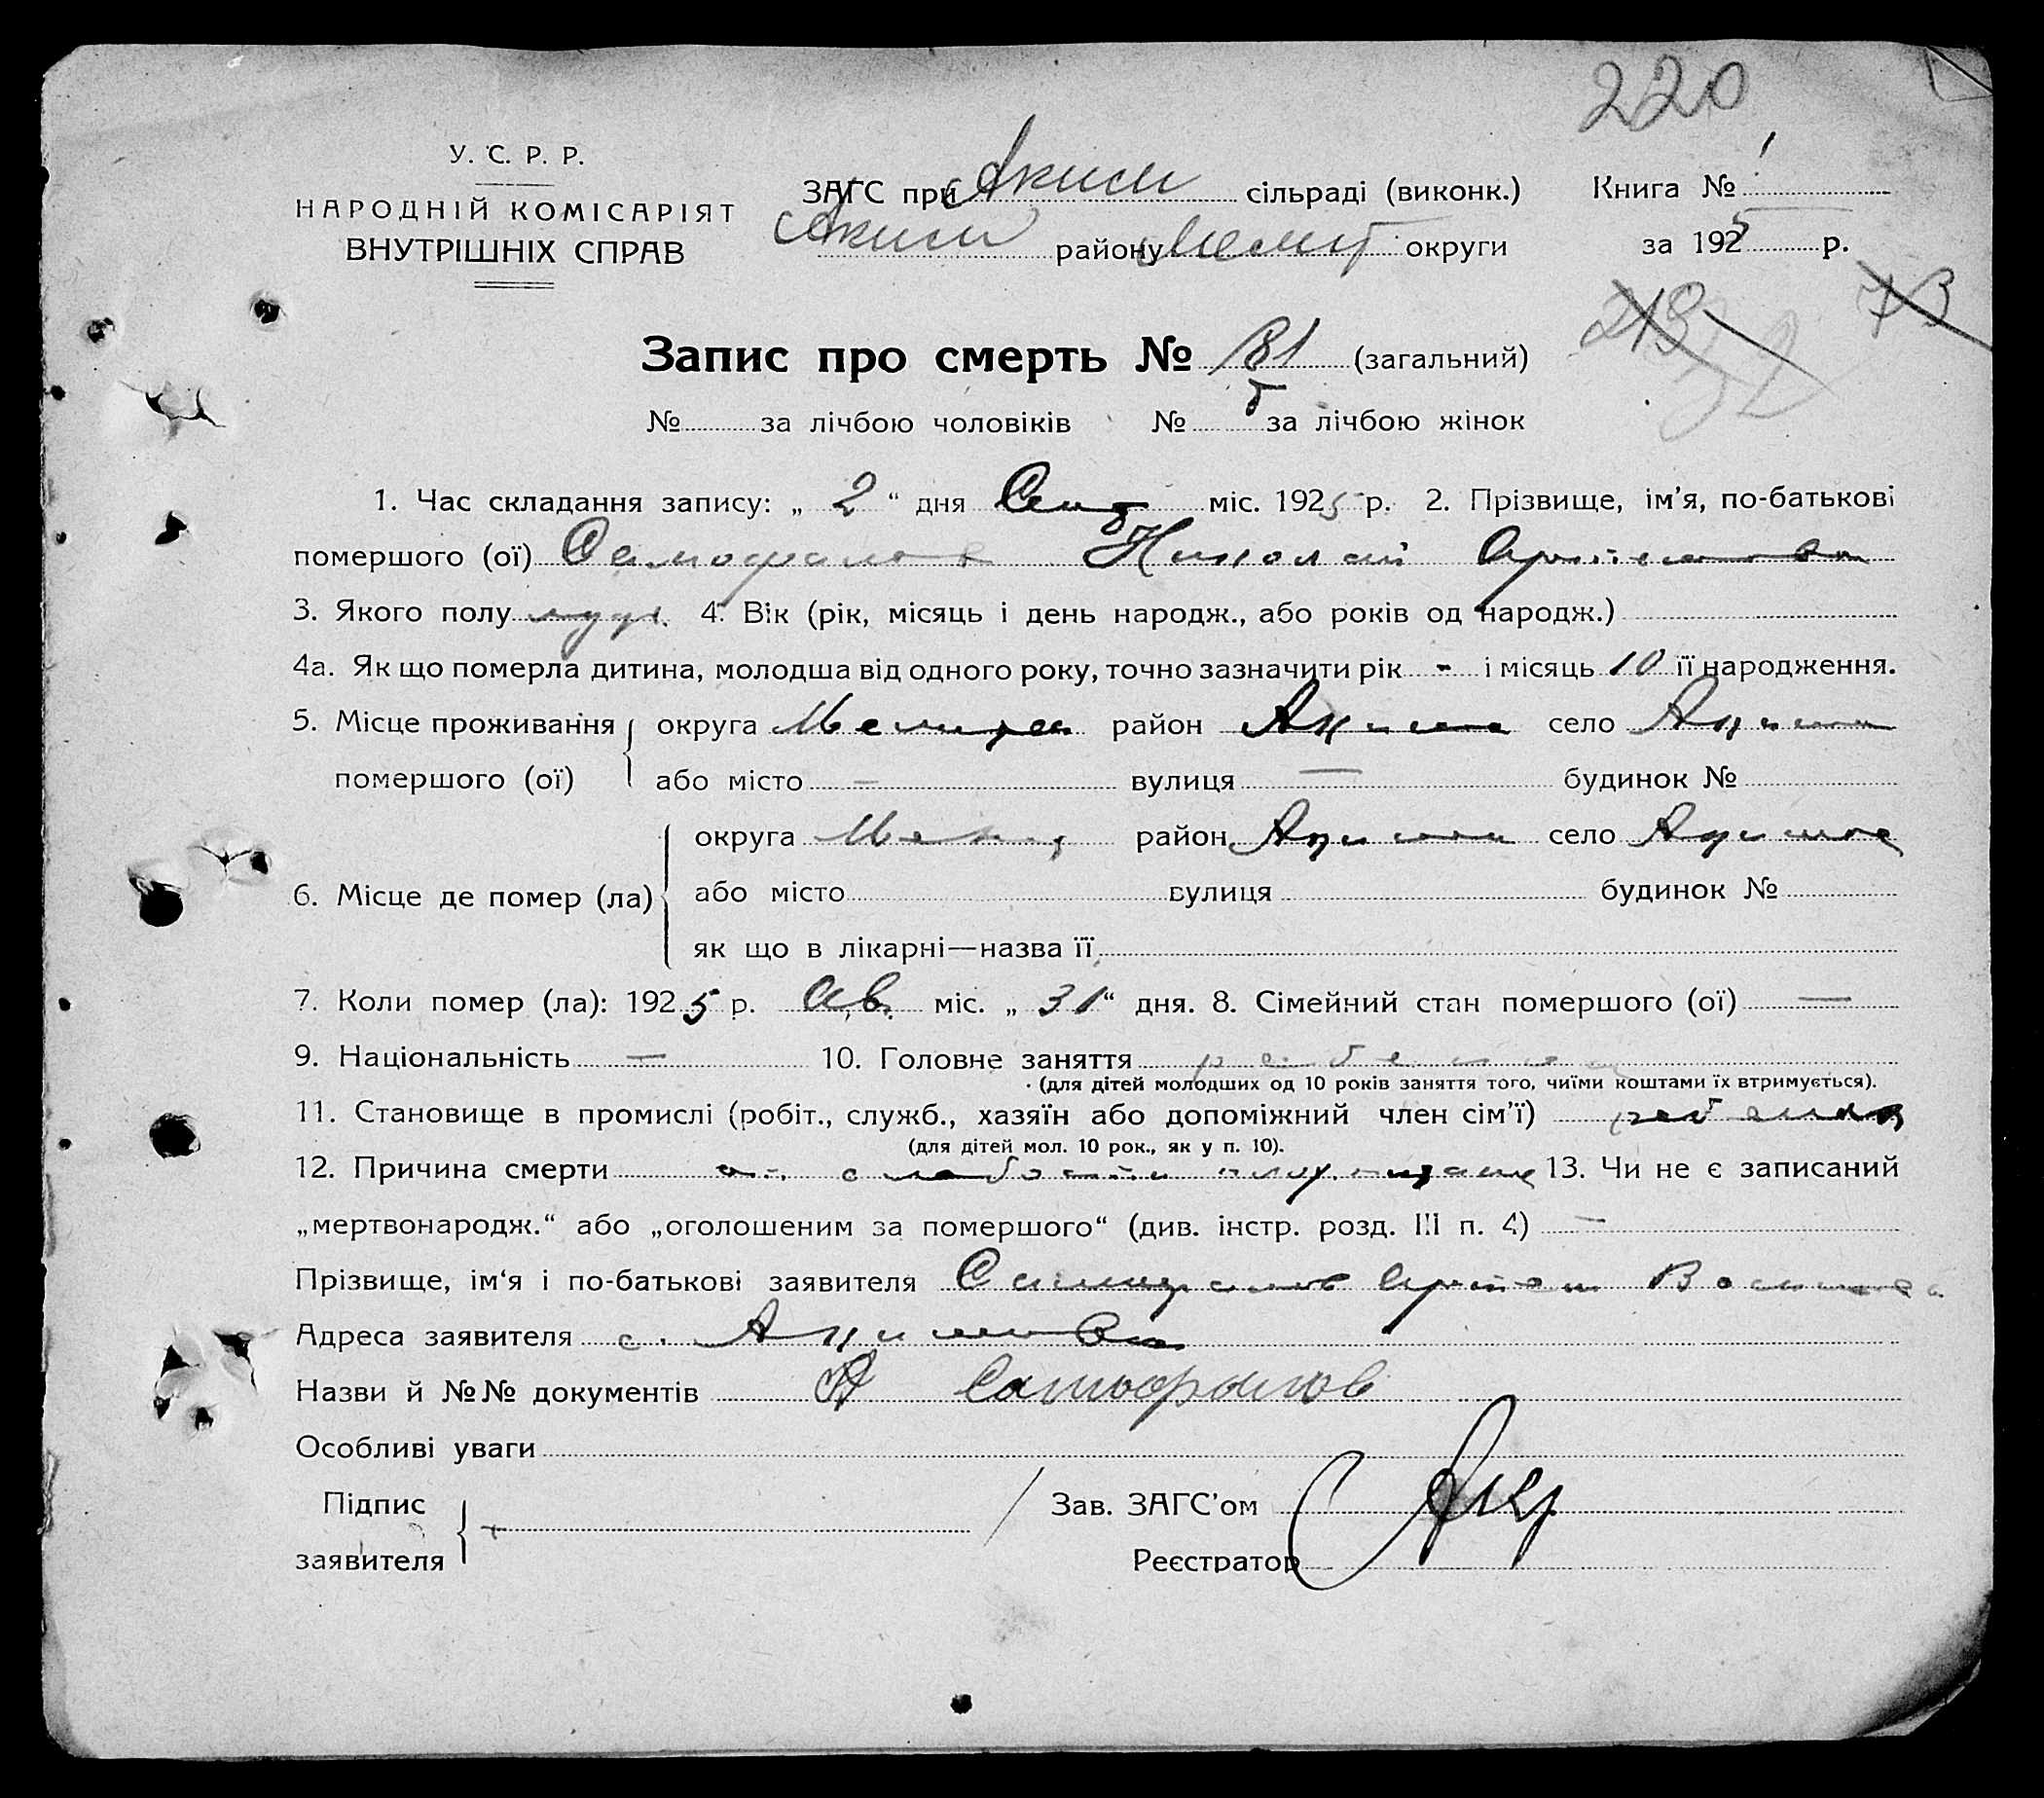 220
У. С. Р. Р.
НАРОДНІЙ КОМІСАРІЯТ
ВНУТРІШНІХ СПРАВ
ЗАГС при Аким сільраді (виконк.)
Книга № 1
Аким району Мелит округи
за 1925 р.
219 73
Запис про смерть № 81 (загальний)
№ за лічбою чоловіків № за лічбою жінок
1. Час складання запису: „ 2 “ дня Сент міс. 1925 р. 2. Прізвище, ім’я, по-батькові
помершого (ої) Самофалов Николай
3. Якого полу муж. 4. Вік (рік, місяць і день народж., або років од народж.)
4а. Як що померла дитина, молодша від одного року, точно зазначити рік - і місяць 10 її народження.
5. Місце проживання округа район село
помершого (ої) або місто — вулиця — будинок №
округа район село
6. Місце де помер (ла) або місто вулиця будинок №
як що в лікарні—назва її
7. Коли помер (ла): 1925 р. Ав. міс. „ 31 “ дня. 8. Сімейний стан помершого (ої) —
9. Національність — 10. Головне заняття ребенок
(для дітей молодших од 10 років заняття того, чиїми коштами їх втримується).
11. Становище в промислі (робіт., служб., хазяїн або допоміжний член сім’ї) ребенок
(для дітей мол. 10 рок., як у п. 10).
12. Причина смерти от слабости 13. Чи не є записаний
„мертвонародж.“ або „оголошеним за помершого“ (див. інстр. розд. III п. 4) —
Прізвище, ім‘я і по-батькові заявителя Самофалов Артем
Адреса заявителя с. Акимовка
Назви й №№ документів А Самофалов
Особливі уваги
Підпис
заявителя
Зав. ЗАГС’ом
Реєстратор